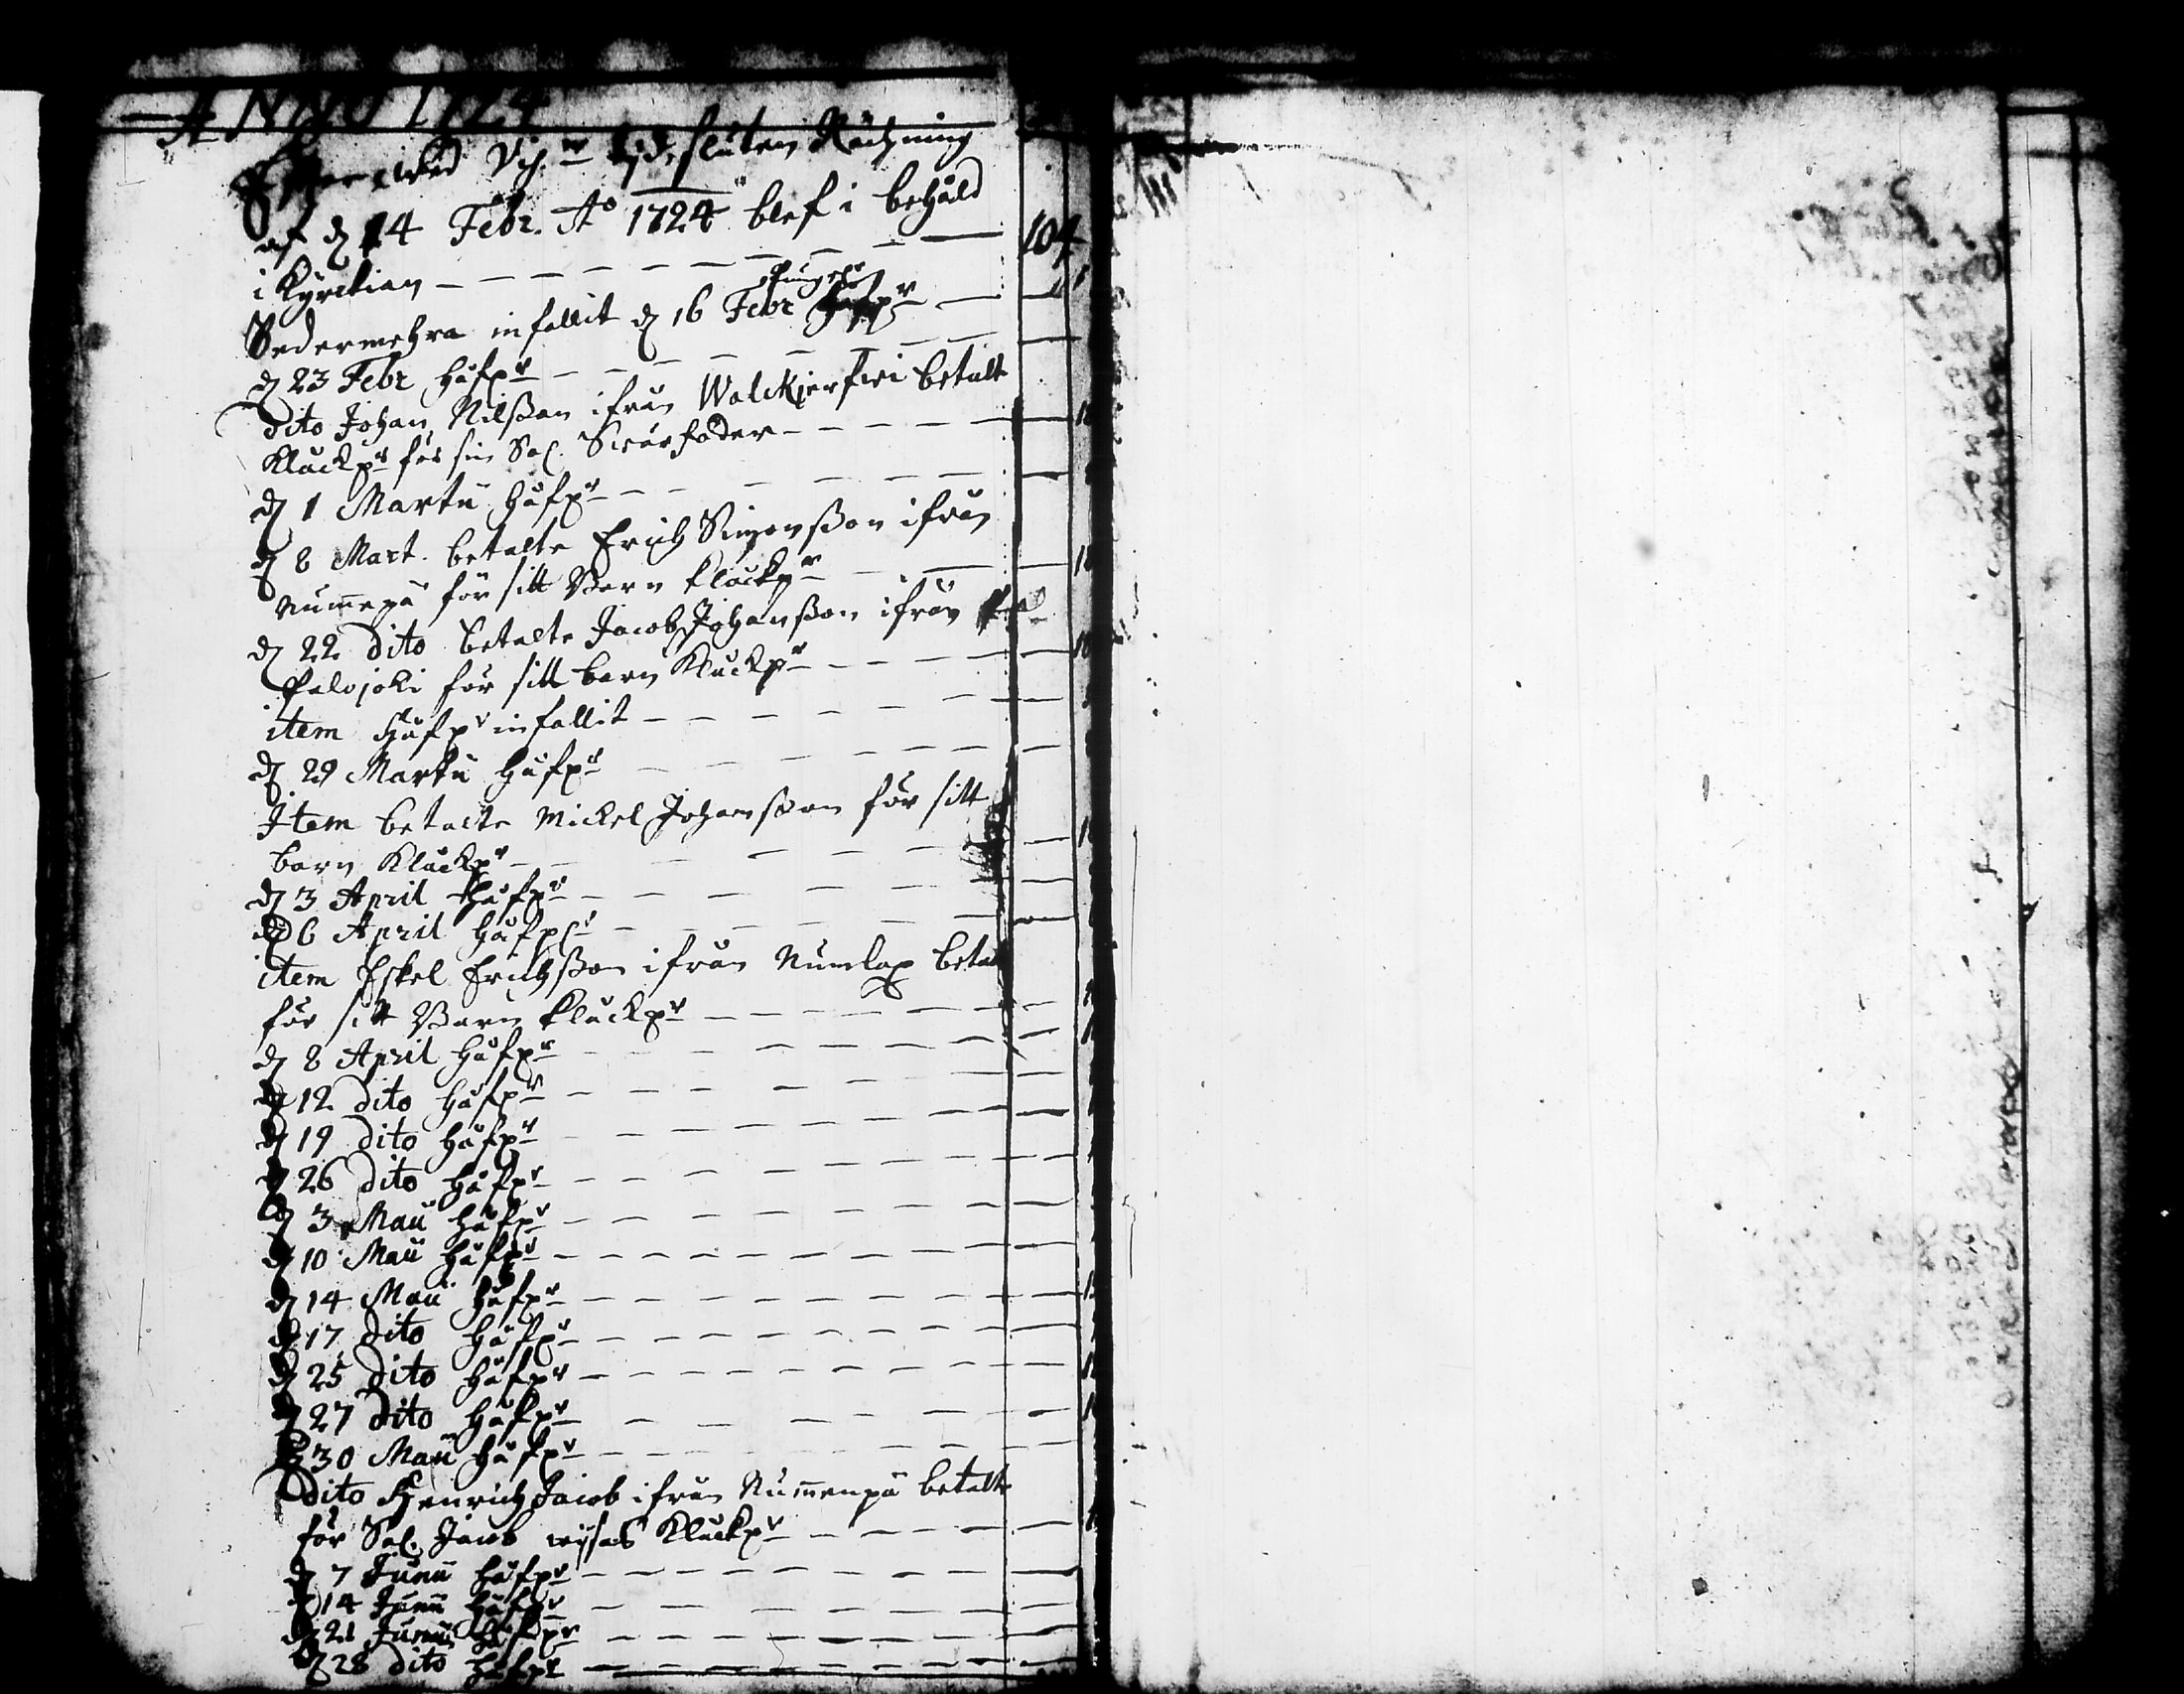 ANNO 1724
wid slúten Räckning
af dn 14 Febr. Ao 1724 blef i behåld
i Kyrckian 104
Sedermehra infallit dn 16 Febr pungpr
dn 23 Febr håfpr
dito Johan Nilsson ifrån Walckjerfwi betalt
Klåckpr för sin Sal. Swärfader
dn 1 Martii håfpr
dn 8 Mart. betalte Erich Simonsson ifrån
Numepä för sitt Barn klåckpr
dn 22 dito betalte Jacob Johansson ifrån
Palojoki för sitt barn Klåckpr
item Håfpr infallit
dn 29 Martii håfpr
Item betalte Mickel Johansson för sitt
barn Klåckpr
dn 3 April håfpr
dn 6 April håfpr
item Eskel Erichsson ifrån Numlax betalt
för sitt Barn klåckpr
dn 8 April håfpr
dn 12 dito håfpr
dn 19 dito håfpr
dn 26 dito håfpr
dn 3 Maii håfpr
dn 10 Maii håfpr
dn 14 Maii håfpr
dn 17 dito håfpr
dn 25 dito håfpr
dn 27 dito håfpr
dn 30 Maii håfpr
Dito Henrich Jacob ifrån Nummenpä betalt
för Sal. Jacob Klåckpr
dn 7 Junii håfpr
dn 14 Junii håfpr
dn 21 Junii håfpr
dn 28 dito håfpr